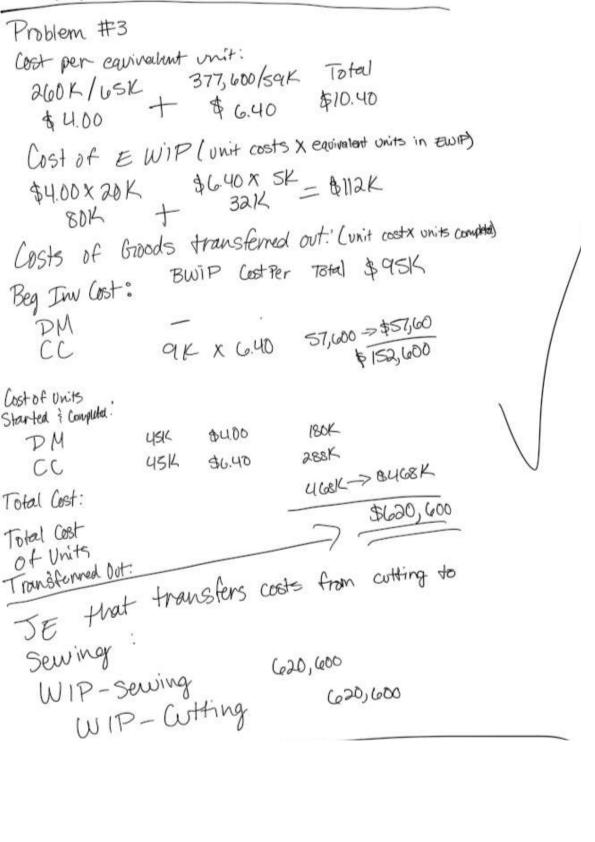 Problem #3
Cost per equivalent unit:
260K/65K + 377,600/59K Total
$4.00 $6.40 $10.40
Cost of E WIP (unit costs X equivalent units in EWIP)
$4.00 X 20K + $6.40 X 5K = $112K
80K 32K
Costs of Goods transferred out: (unit cost x units completed)
Beg Inv Cost: BWIP Cost Per Total $95K
DM —
CC 9K X 6.40 57,600 → $57,60
$152,600
Cost of Units
Started & Completed:
DM 45K $4.00 180K
CC 45K $6.40 288K
Total Cost: 468K → $468K
Total Cost $620,600
of Units
Transferred Out:
JE that transfers costs from cutting to
Sewing:
WIP-Sewing 620,600
WIP-Cutting 620,600